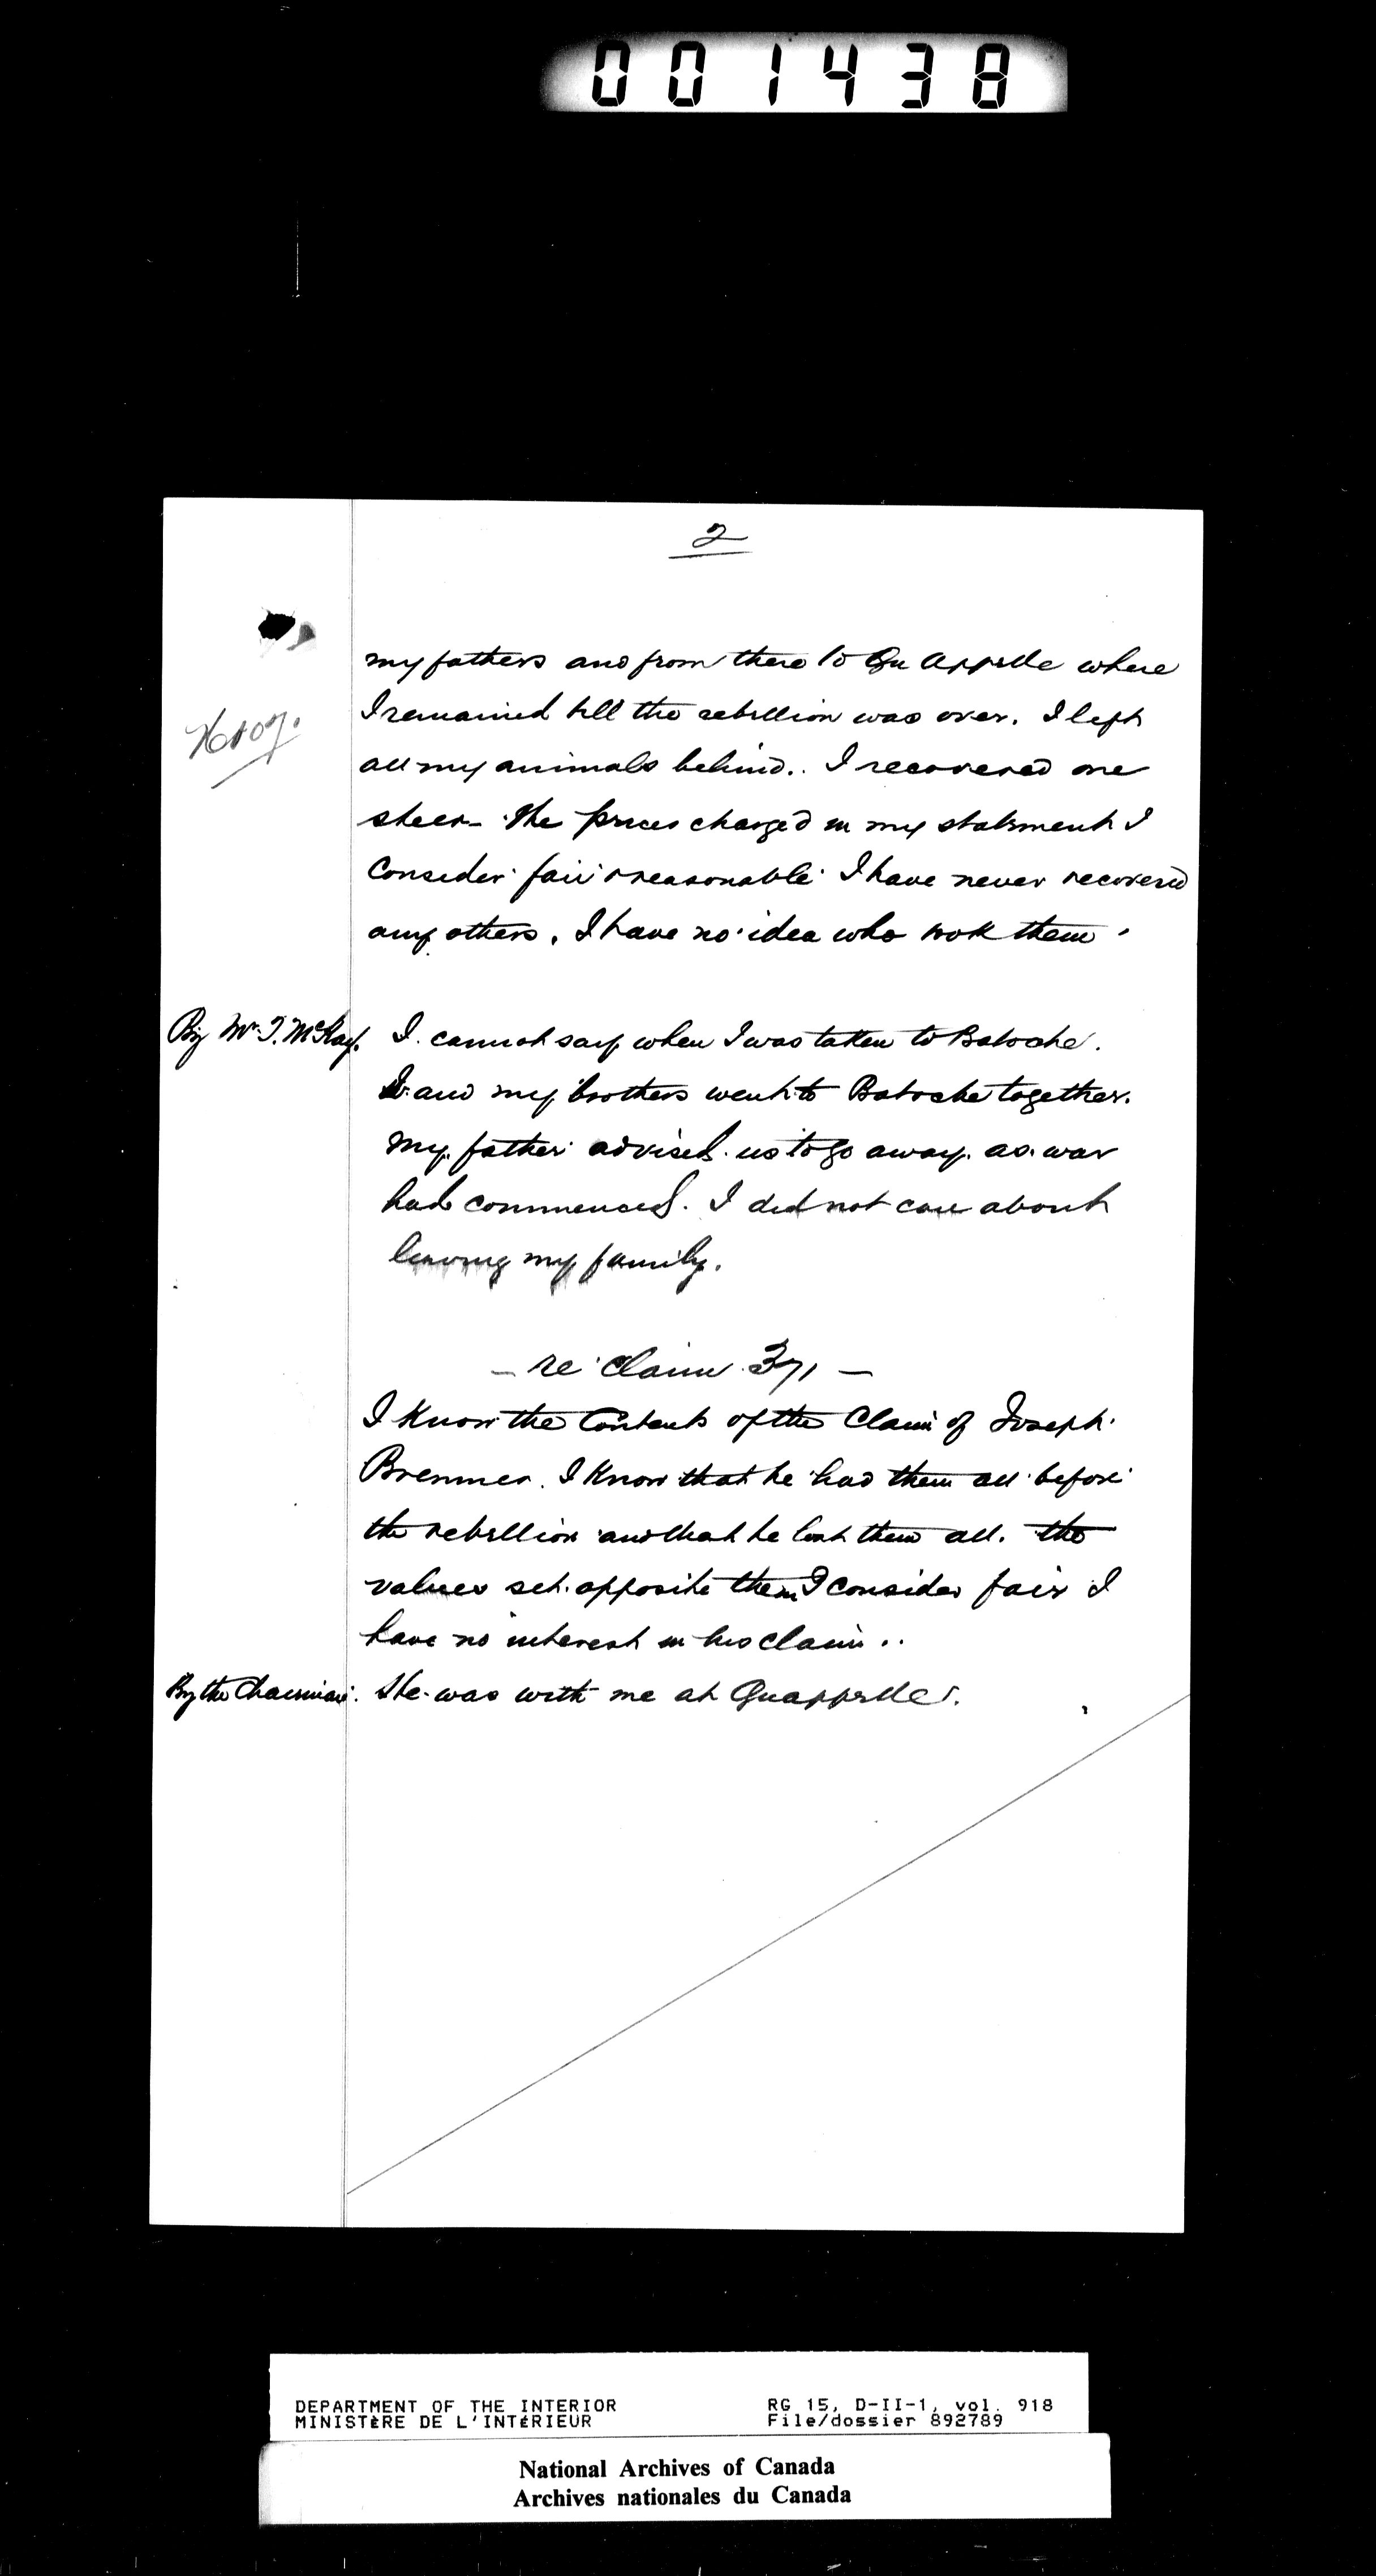 001438
2
my fathers and from there to Qu Appelle where
I remained till the rebellion was over. I left
all my animals behind.. I recovered one
steer - The prices charged in my statement I
consider fair & reasonable I have never recovered
any others. I have no idea who took them.
By Mr. T. McKay. I cannot say when I was taken to Batoche.
I and my brothers went to Batoche together.
My father advised us to go away as war
had commenced. I did not care about
leaving my family.
- re Claim 371 -
I know the contents of the Claim of Joseph
Bremner. I know that he had them all before
the rebellion and that he lost them all. The
values set opposite them I consider fair I
have no interest in his claim..
By the Chairman. He was with me at Quappelle.
DEPARTMENT OF THE INTERIOR RG 15, D-II-1, vol. 918
MINISTÈRE DE L'INTÉRIEUR File/dossier 892789
National Archives of Canada
Archives nationales du Canada